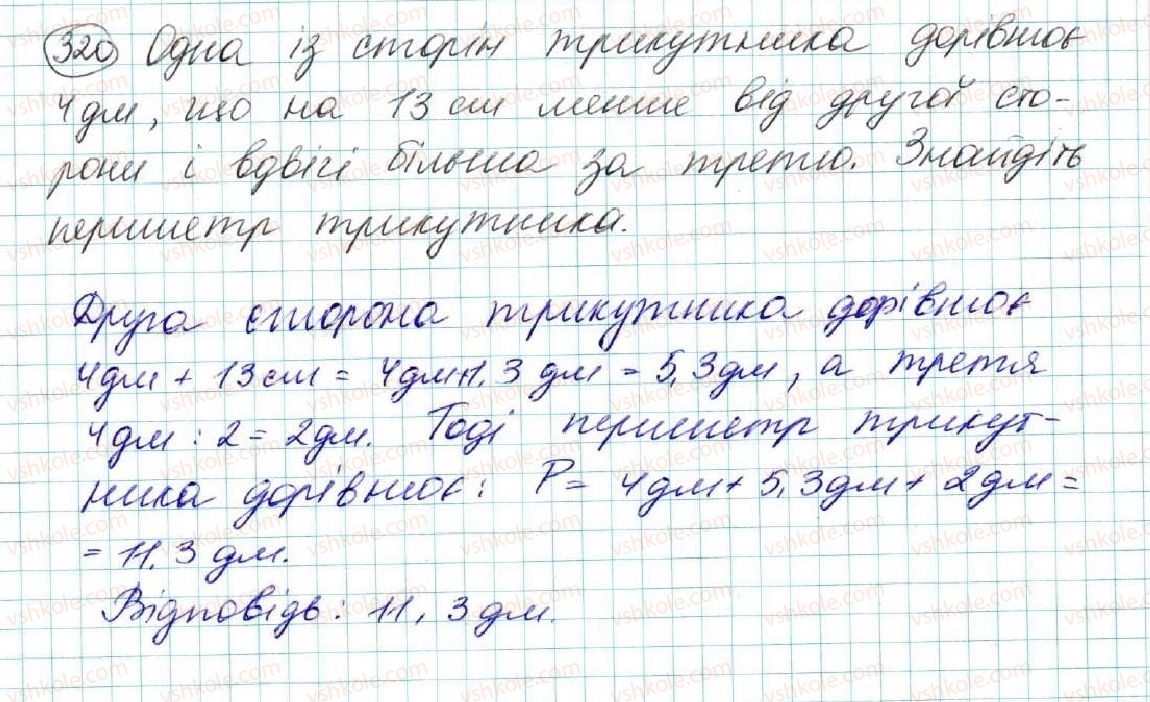 320 Одна із сторін трикутника дорівнює
4дм, що на 13 см менше від другої сто-
рони і вдвічі більша за третю. Знайдіть
периметр трикутника.
Друга сторона трикутника дорівнює
4дм + 13 см = 4дм+1,3 дм = 5,3дм, а третя
4дм : 2 = 2дм. Тоді периметр трикут-
ника дорівнює: P = 4дм + 5,3дм + 2дм =
= 11,3 дм.
Відповідь: 11,3 дм.